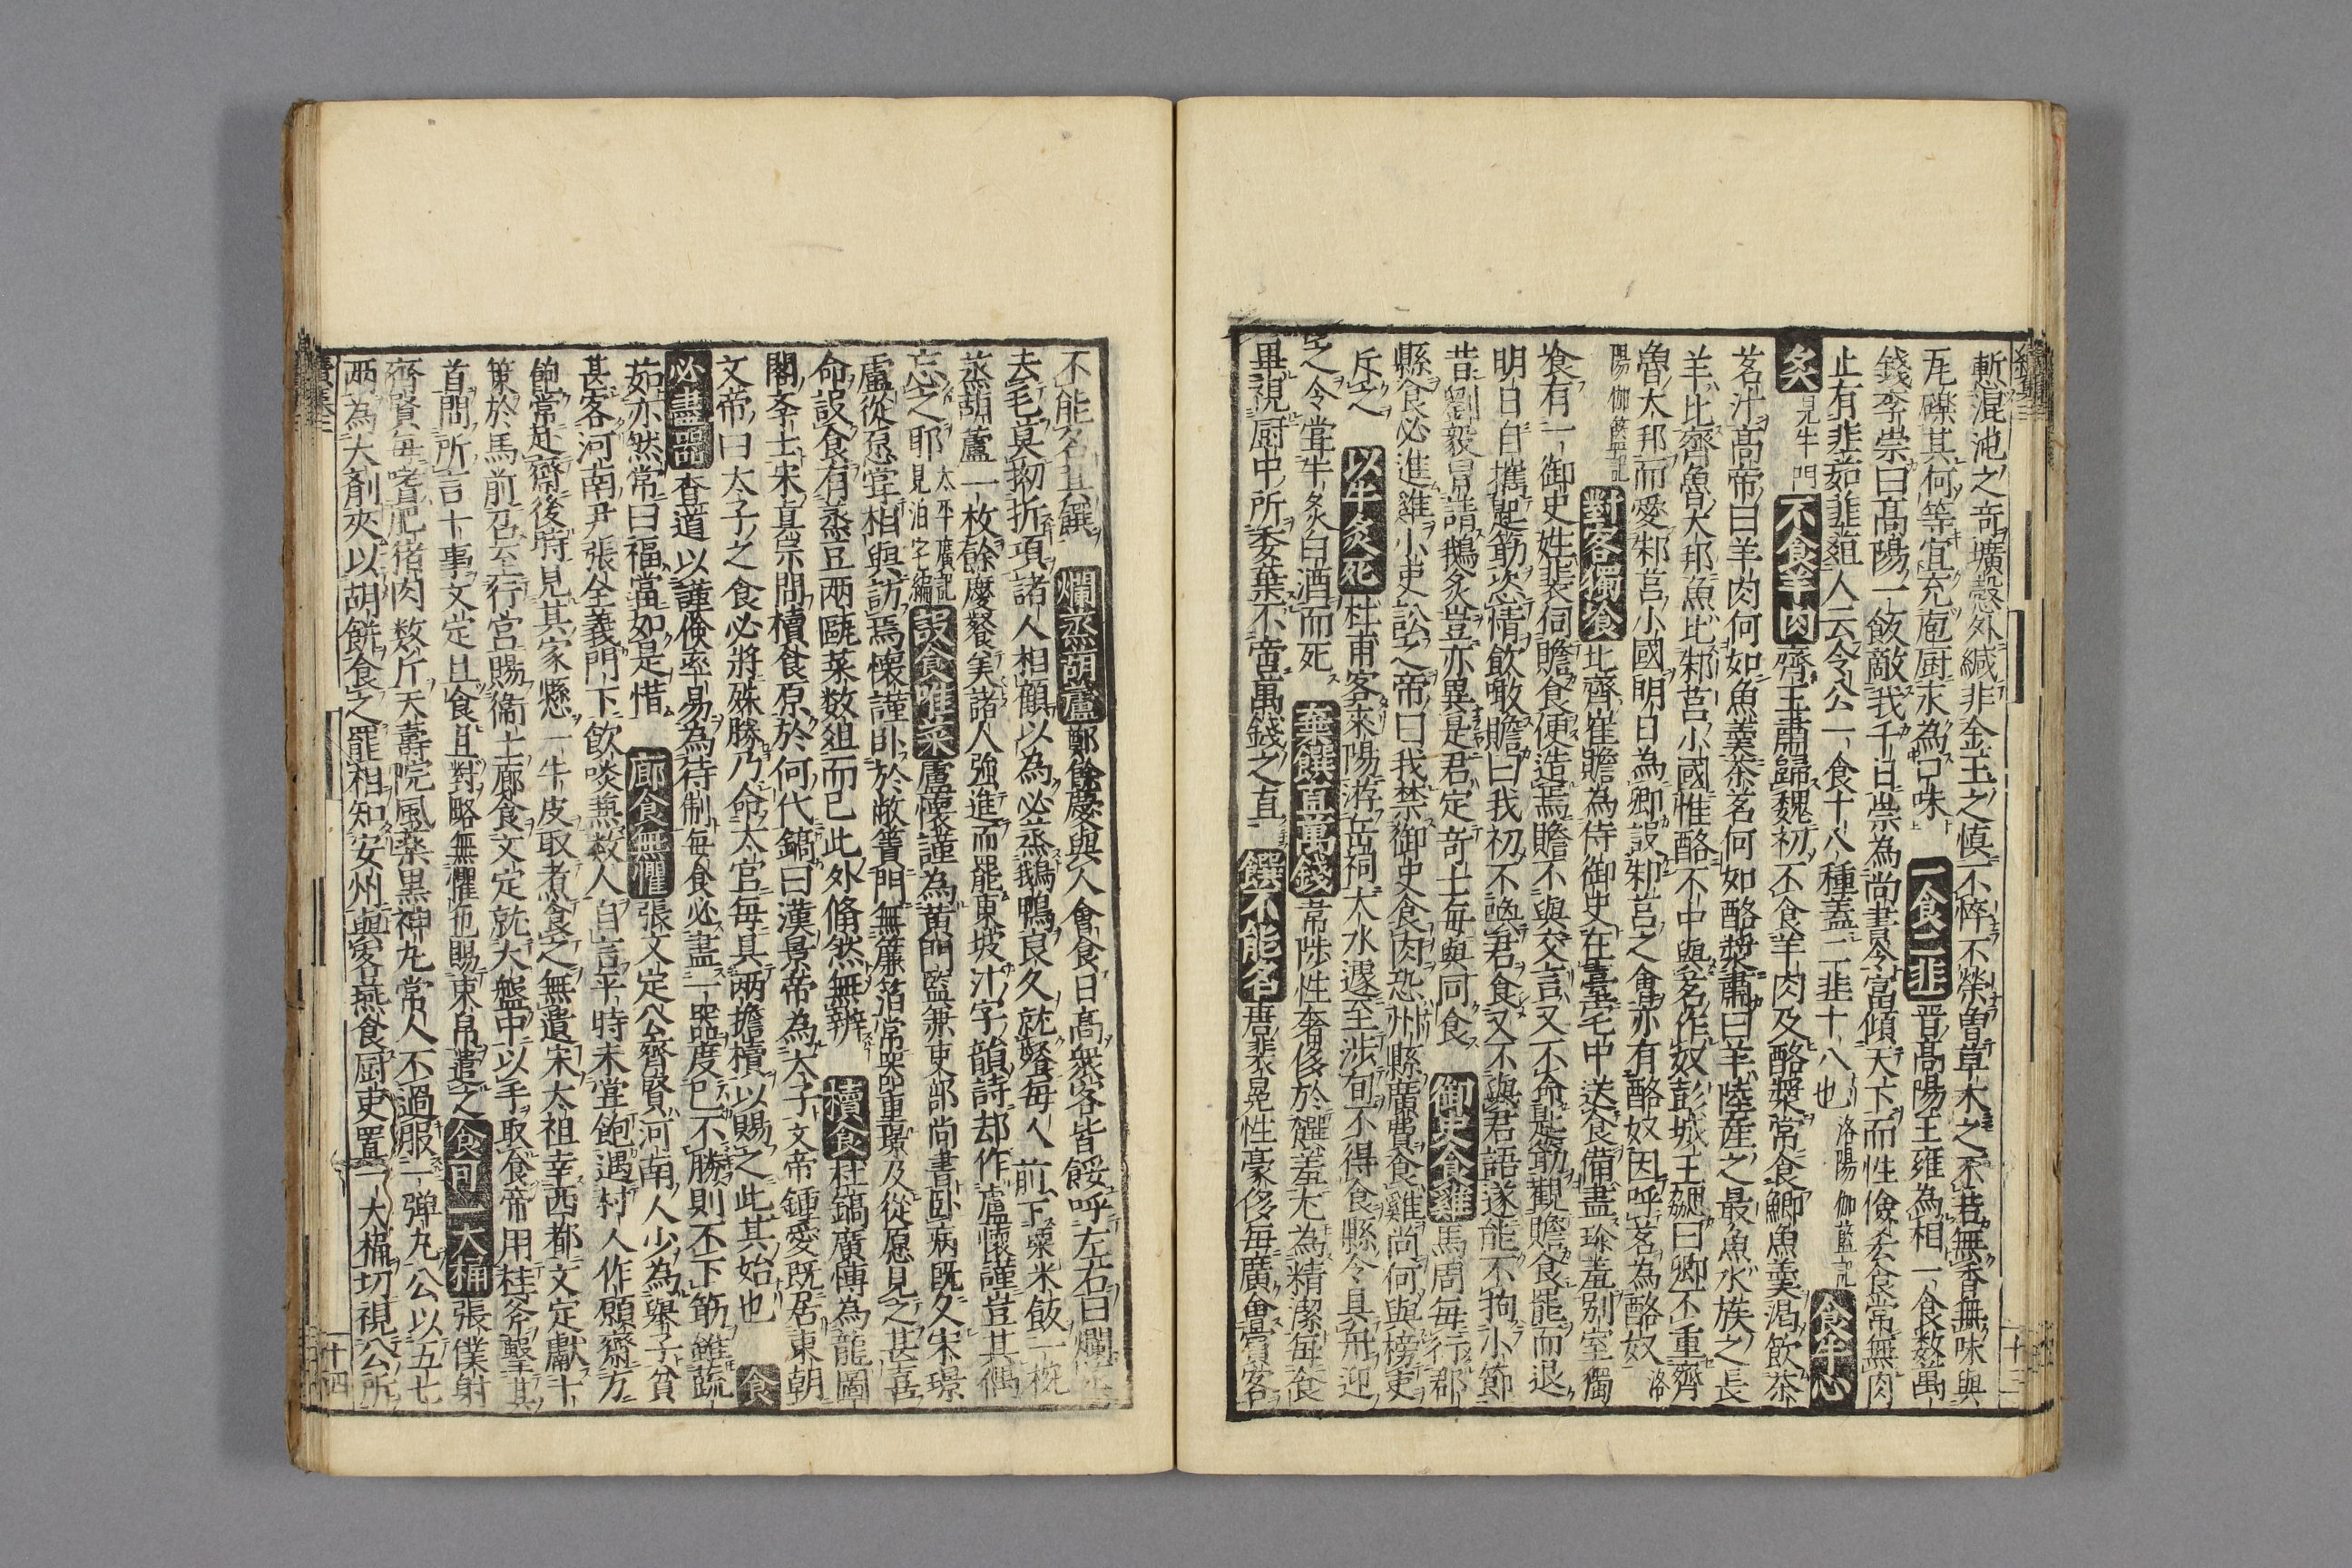 慙混沌之竒壙㲉外緘非金玉之慎不悴不榮曽草木之不若無香無味與
瓦礫其何等宜充庖厨末為口味 一食二韭 晋高陽王雍為相一食数萬
錢李崇曰高陽一飯敵我千日崇為尚書令富傾天下而性儉𠫤食常無肉
止有韭茹韭葅人云令公一食十八種蓋二韭十八也 洛陽伽藍記 食牛心
炙 見牛門 不食羊肉 齊王肅歸魏初不食羊肉及酪漿常食鯽魚羹渇飲茶
茗汁高帝曰羊肉何如魚羹茶茗何如酪漿肅曰羊陸産之最魚水族之長
羊比齊魯大邦魚比邾莒小國惟酪不中與茗作奴彭城王勰曰卿不重齊
魯大邦而愛邾莒小國明日為卿設邾莒之會亦有酪奴因呼茗為酪奴 洛
陽伽藍記 對客獨飡 北齊崔贍為侍御史在臺宅中送食備盡珍羞别室獨
飡有一御史姓裴伺贍食便造焉贍不與交言又不命匙筯觀贍食罷而退
明日自攜匙筯恣情飲噉贍曰我初不喚君食又不與君語遂能不拘小節
昔劉毅冐請鵝炙豈亦異是君定竒士毎與同食 御史食雞 馬周毎行郡
縣食必進雞小吏訟之帝曰我禁御史食肉恐州縣廣費食雞尚何與榜吏
斥之 以牛炙死 杜甫客耒陽游岳祠大水遽至渉旬不得食縣令具舟迎
之令甞牛炙白酒而死 華饌直萬錢 常陟性奢侈於饌羞尤為精潔毎食
畢視厨中所委棄不啻萬錢之直 饌不能名 唐裴冕性豪侈毎廣會賔客
不能名其饌 爛蒸葫蘆 鄭餘慶與人會食日高衆客皆餒呼左右曰爛蒸
去毛莫拗折項諸人相顧以為必蒸鵝鴨良久就餐毎人前下粟米飯一椀
蒸葫蘆一枚餘慶餐美諸人強進而罷東坡汁字韻詩却作盧懷謹豈其偶
忘之耶 太平廣記見泊字編 設食唯菜 盧懷謹為黄門監兼吏部尚書卧病既久宋璟
盧從愿甞相與訪焉懷謹卧於敝簀門無簾箔常器重璟及從愿見之甚喜
命設食有蒸豆兩甌菜数俎而已此外翛然無辦 櫝食 杜鎬廣傳為龍圖
閣李士宋真宗問櫝食原於何代鎬曰漢景帝為太子文帝鍾愛既居東朝
文帝曰太子之食必將殊勝乃命太官毎具兩擔櫝以賜之此其始也 食
必盡器 查道以謹儉率易為待制毎食必盡一器度已不勝則不下筯雖蔬
茹亦然常曰福當如是惜 廊食無懼 張文定公齊賢河南人少為舉子貧
甚客河南尹張全義門下飲啖兼数人自言平時未甞飽遇村人作願齋方
飽常赴齋後時見其家懸一牛皮取煮食之無遺宋太祖幸西都文定獻十
策於馬前召至行宮賜衞士廊食文定就大盤中以手取食帝用桂斧𢿛其
首問所言十事文定且食且對略無懼色賜束帛遣之 食可一大桶 張僕射
齊賢毎嗜肥猪肉数斤天壽院風藥黒神丸常人不過服一弾丸公以五七
两為大剤夾以胡餅食之罷相知安州與客燕食厨吏置一大桶切視公所
續集三
十三
十四